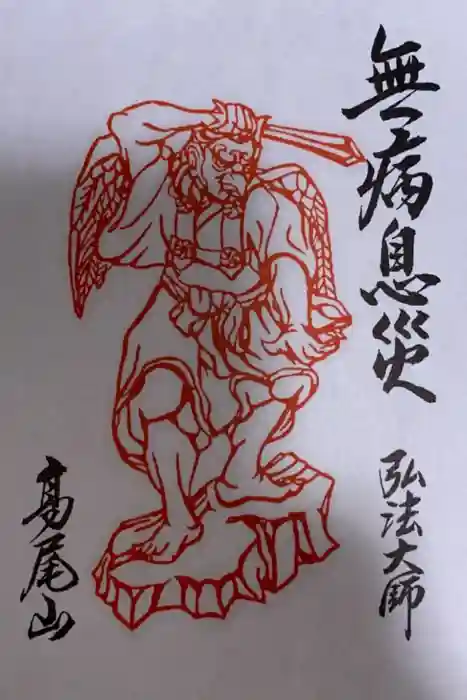 無病息災
弘法大師
高尾山